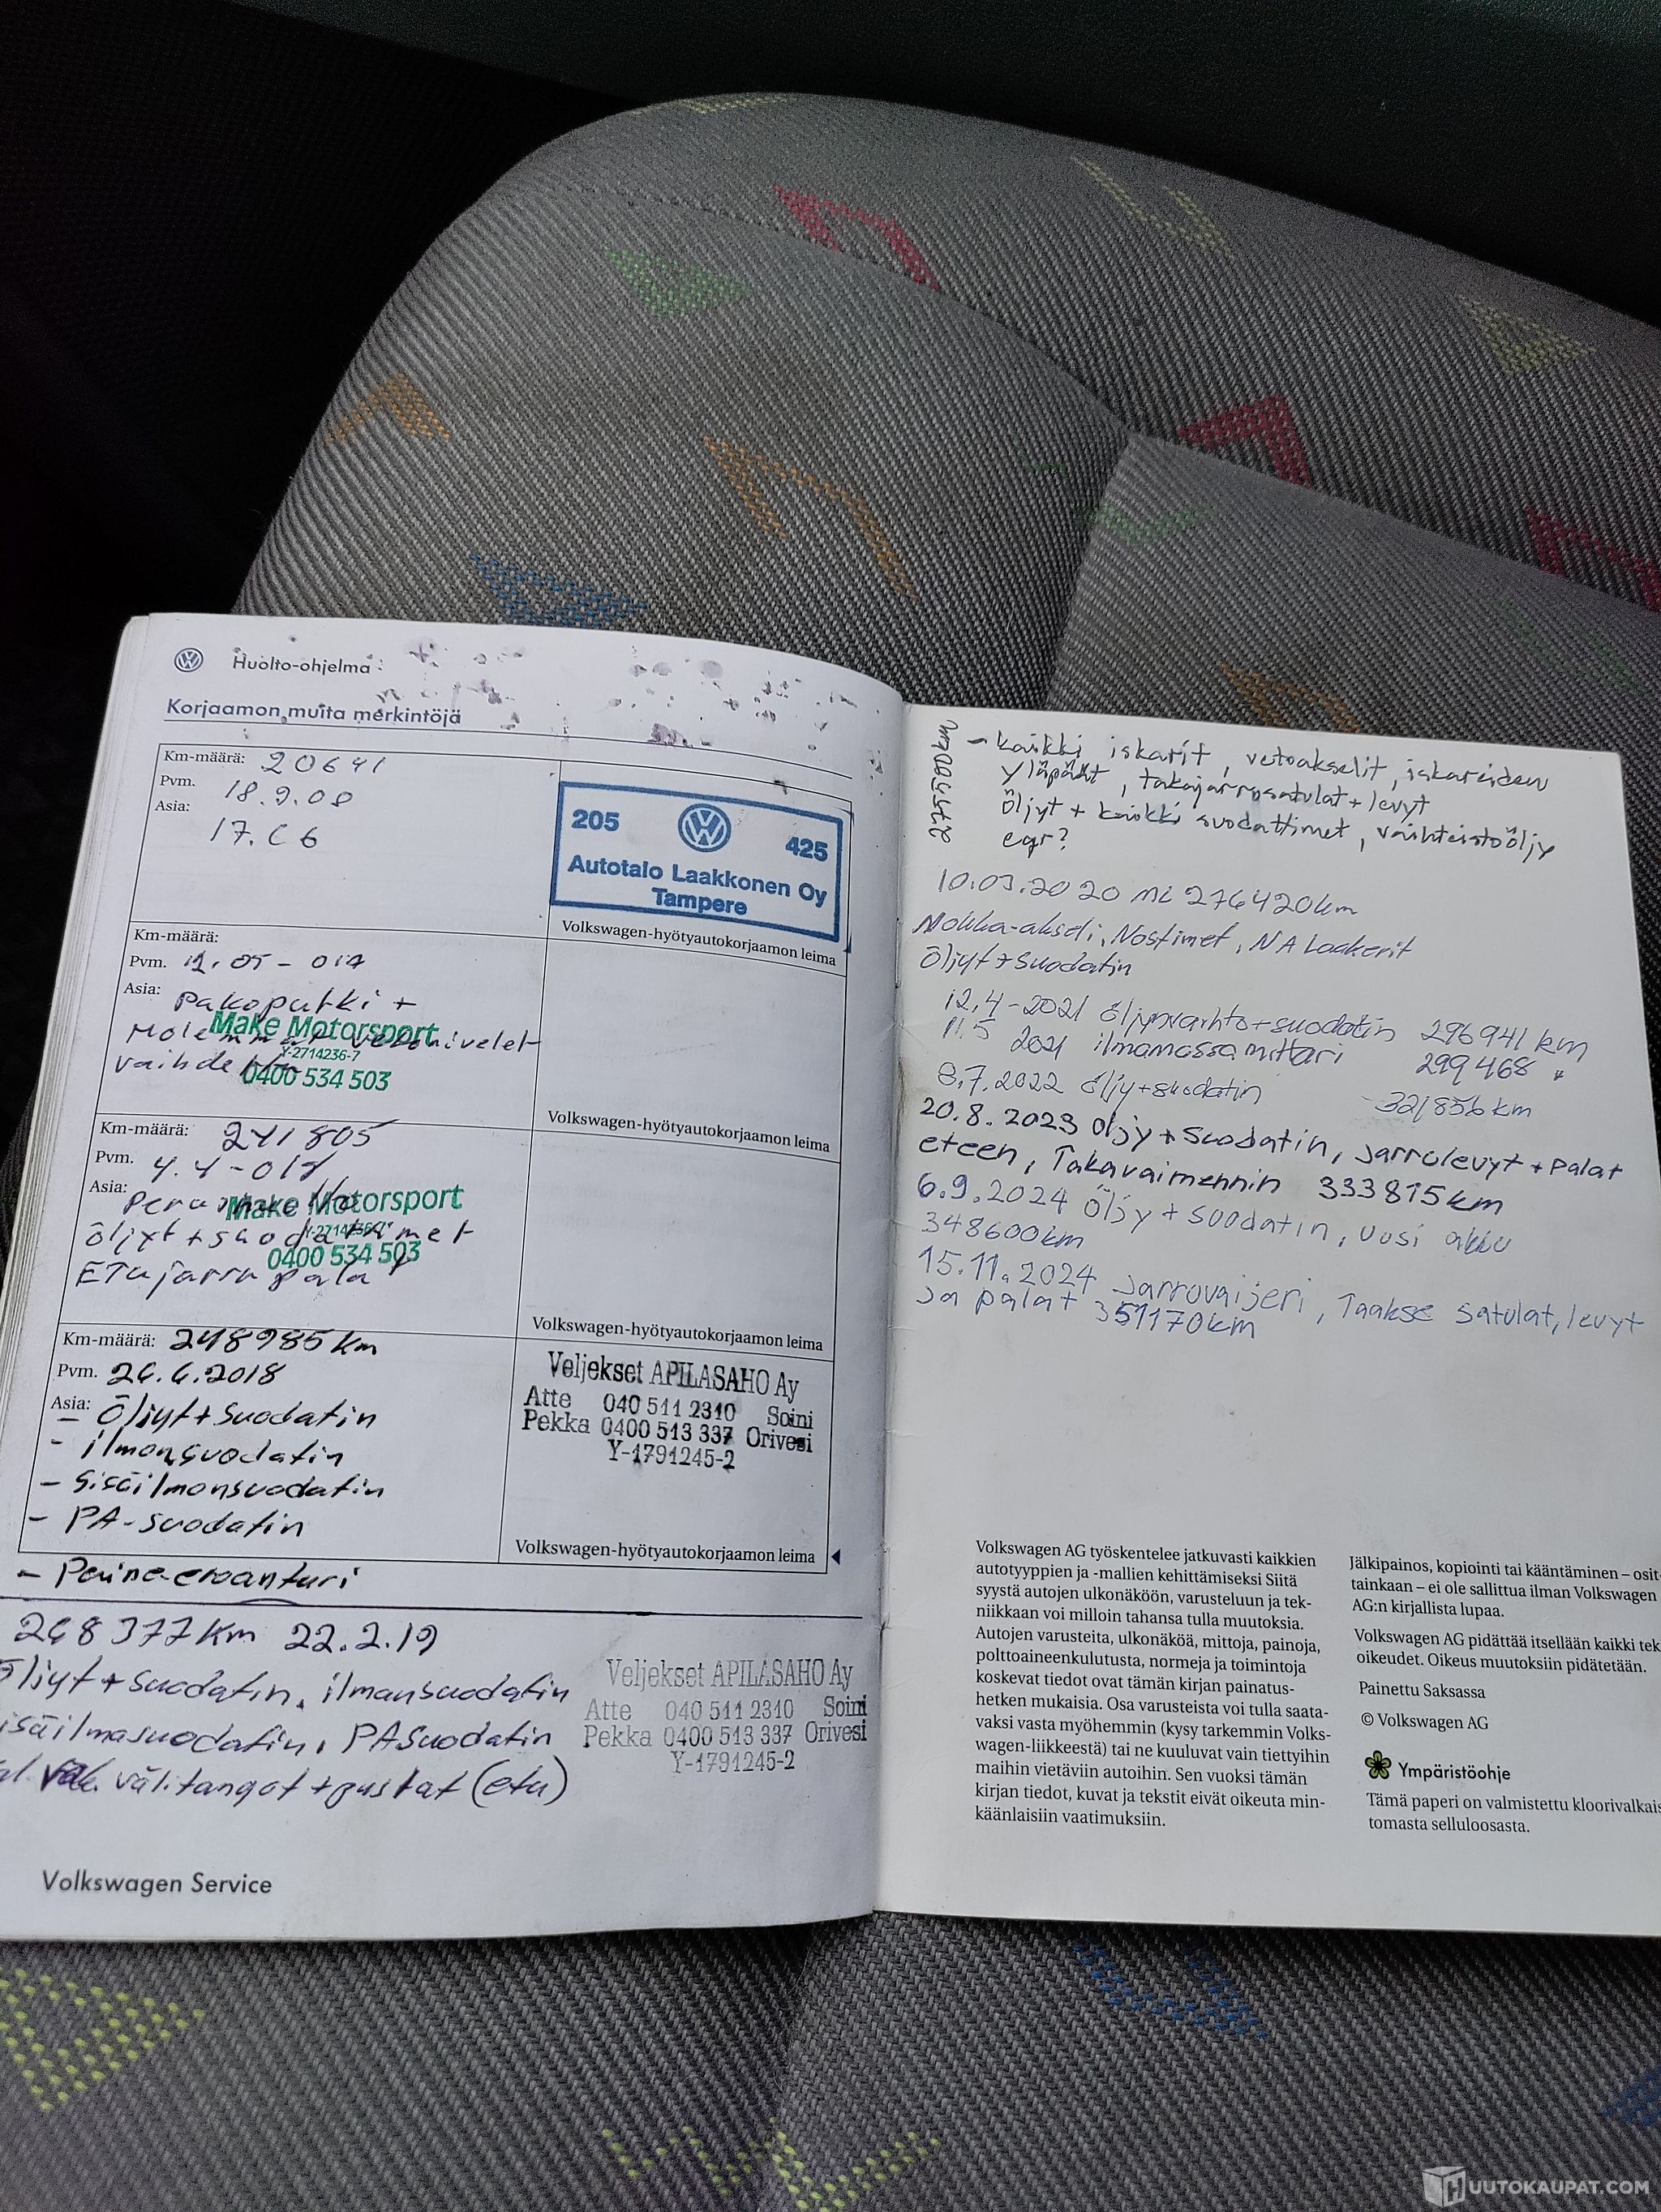 Huolto-ohjelma
Korjaamon muita merkintöjä
Km-määrä: 20641
Pvm. 18.9.08
Asia: 17.C6
205 425
Autotalo Laakkonen Oy
Tampere
Volkswagen-hyötyautokorjaamon leima
Km-määrä:
Pvm. 12.05-017
Asia: Pakoputki +
Molemmat vetonivelet
vaihdettu
Make Motorsport
Y-2714236-7
0400 534 503
Volkswagen-hyötyautokorjaamon leima
Km-määrä: 241805
Pvm. 4.4-018
Asia:
öljyt + suodattimet
Etujarru palat
Make Motorsport
0400 534 503
Volkswagen-hyötyautokorjaamon leima
Km-määrä: 248985 km
Pvm. 26.6.2018
Asia:
- Öljyt + Suodatin
- ilmansuodatin
- Sisäilmansuodatin
- PA-suodatin
Veljekset APILASAHO Ay
Atte 040 511 2310 Soini
Pekka 0400 513 337 Orivesi
Y-1791245-2
Volkswagen-hyötyautokorjaamon leima
- Paine-eroanturi
268377 km 22.2.19
Öljyt + Suodatin, ilmansuodatin
isäilmasuodatin, PASuodatin
välitangot + puslat (etu)
Veljekset APILASAHO Ay
Atte 040 511 2310 Soini
Pekka 0400 513 337 Orivesi
Y-1791245-2
Volkswagen Service
275580km
- kaikki iskarit, vetoakselit, iskareiden
yläpäät, takajarrusatulat + levyt
öljyt + kaikki suodattimet, vaihteistoöljy
egr?
10.03.2020 ML 276420km
Nokka-akseli, Nostimet, NA Laakerit
Öljyt + suodatin
12.4-2021 öljynvaihto + suodatin 296941 km
11.5 2021 ilmamassamittari 299468 "
8.7.2022 öljy + suodatin 321856 km
20.8.2023 Öljy + Suodatin, Jarrulevyt + palat
eteen, Takavaimennin 333815km
6.9.2024 Öljy + suodatin, uusi akku
348600km
15.11.2024 Jarruvaijeri, Taakse satulat, levyt
ja palat 351170km
Volkswagen AG työskentelee jatkuvasti kaikkien
autotyyppien ja -mallien kehittämiseksi Siitä
syystä autojen ulkonäköön, varusteluun ja tek-
niikkaan voi milloin tahansa tulla muutoksia.
Autojen varusteita, ulkonäköä, mittoja, painoja,
polttoaineenkulutusta, normeja ja toimintoja
koskevat tiedot ovat tämän kirjan painatus-
hetken mukaisia. Osa varusteista voi tulla saata-
vaksi vasta myöhemmin (kysy tarkemmin Volks-
wagen-liikkeestä) tai ne kuuluvat vain tiettyihin
maihin vietäviin autoihin. Sen vuoksi tämän
kirjan tiedot, kuvat ja tekstit eivät oikeuta min-
käänlaisiin vaatimuksiin.
Jälkipainos, kopiointi tai kääntäminen – osit-
tainkaan – ei ole sallittua ilman Volkswagen
AG:n kirjallista lupaa.
Volkswagen AG pidättää itsellään kaikki tek
oikeudet. Oikeus muutoksiin pidätetään.
Painettu Saksassa
© Volkswagen AG
Ympäristöohje
Tämä paperi on valmistettu kloorivalkais
tomasta selluloosasta.
HUUTOKAUPAT.COM